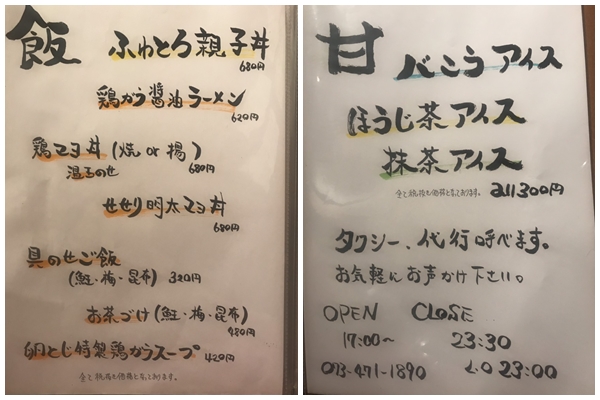 飯
ふわとろ親子丼
680円
鶏がら醤油ラーメン
620円
鶏マヨ丼(焼 or 揚)
温玉のせ 680円
せせり明太マヨ丼
680円
具のせご飯
(鮭・梅・昆布) 320円
お茶づけ(鮭・梅・昆布)
480円
卵とじ特製鶏がらスープ 420円
全て税抜き価格となっております。
甘
バニラアイス
ほうじ茶アイス
抹茶アイス
全て税抜き価格となっております。 all300円
タクシー、代行呼べます。
お気軽にお声かけ下さい。
OPEN CLOSE
17:00~ 23:30
093-471-1890 L.O 23:00